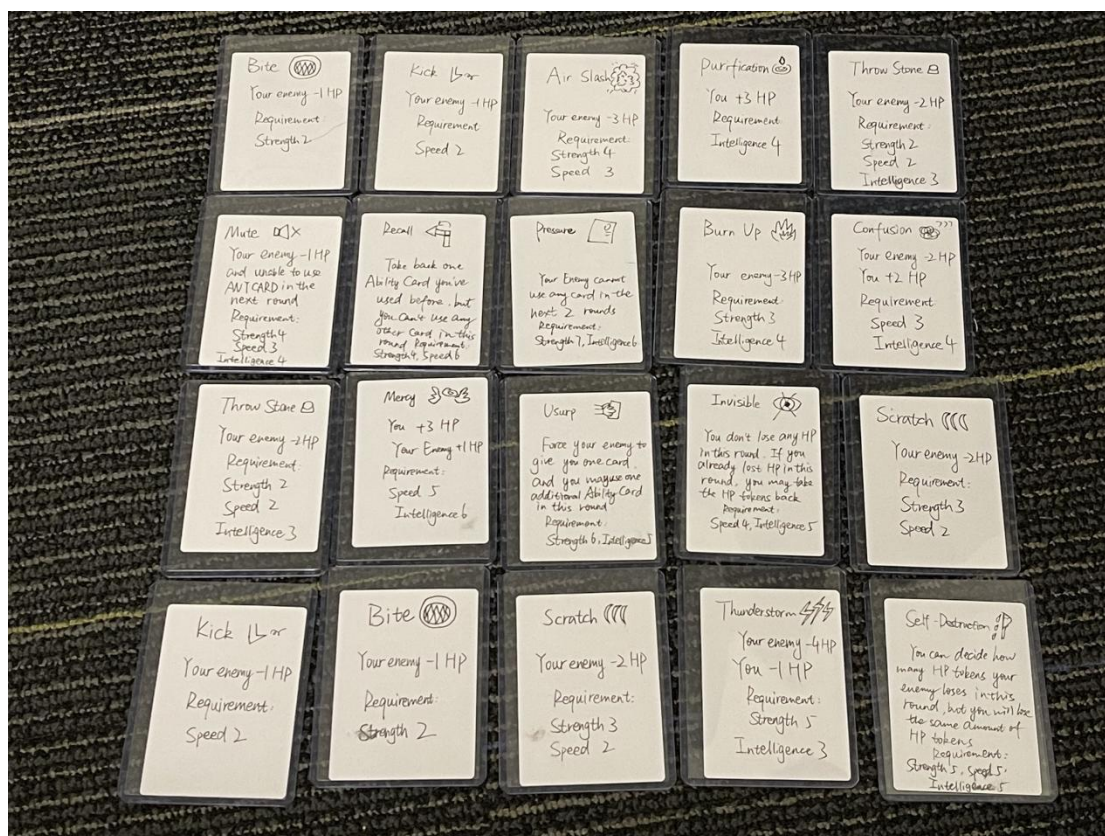 Bite
Your enemy -1 HP
Requirement:
Strength 2
Kick
Your enemy -1 HP
Requirement
Speed 2
Air Slash
Your enemy -3 HP
Requirement:
Strength 4
Speed 3
Purification
You +3 HP
Requirement
Intelligence 4
Throw Stone
Your enemy -2 HP
Requirement:
Strength 2
Speed 2
Intelligence 3
Mute
Your enemy -1 HP
and unable to use
ANY CARD in the
next round
Requirement:
Strength 4
Speed 3
Intelligence 4
Recall
Take back one
Ability Card you've
used before, but
you can't use any
other card in this
round Requirement:
Strength 4, Speed 6
Pressure
Your Enemy cannot
use any card in the
next 2 rounds
Requirement:
Strength 7, Intelligence 6
Burn Up
Your enemy -3 HP
Requirement:
Strength 3
Intelligence 4
Confusion ???
Your enemy -2 HP
You +2 HP
Requirement
Speed 3
Intelligence 4
Throw Stone
Your enemy -2 HP
Requirement:
Strength 2
Speed 2
Intelligence 3
Mercy
You +3 HP
Your Enemy +1 HP
Requirement:
Speed 5
Intelligence 6
Usurp
Force your enemy to
give you one card.
And you may use one
additional Ability Card
in this round
Requirement:
Strength 6, Intelligence 5
Invisible
You don't lose any HP
in this round. If you
already lost HP in this
round, you may take
the HP tokens back
Requirement:
Speed 4, Intelligence 5
Scratch
Your enemy -2 HP
Requirement:
Strength 3
Speed 2
Kick
Your enemy -1 HP
Requirement:
Speed 2
Bite
Your enemy -1 HP
Requirement:
Strength 2
Scratch
Your enemy -2 HP
Requirement:
Strength 3
Speed 2
Thunderstorm
Your enemy -4 HP
You -1 HP
Requirement:
Strength 5
Intelligence 3
Self-Destruction
You can decide how
many HP tokens your
enemy loses in this
round, but you will lose
the same amount of
HP tokens
Requirement:
Strength 5, Speed 5,
Intelligence 5